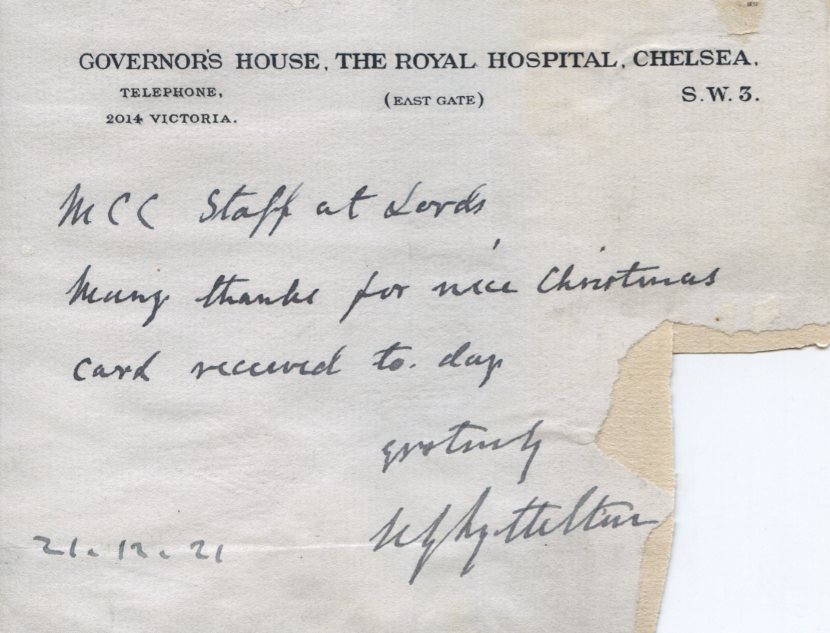 GOVERNOR'S HOUSE, THE ROYAL HOSPITAL, CHELSEA,
TELEPHONE, (EAST GATE) S.W. 3.
2014 VICTORIA.
MCC Staff at Lords
Many thanks for nice Christmas
card received to. day
gratefully
NG Lyttelton
21. 12. 21